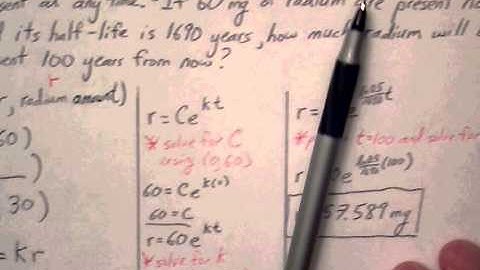 as any time. If 60 mg of radium are present
its half-life is 1690 years, how much radium will
100 years from now?
r, radium amount)
60)
)
30)
= kr
r = Ce^{kt}
* solve for C
using (0,60)
60 = Ce^{k(0)}
60 = C
r = 60e^{kt}
* solve for k
r =
t
* t=100 and solve for
r
0e
(100)
57.589 mg